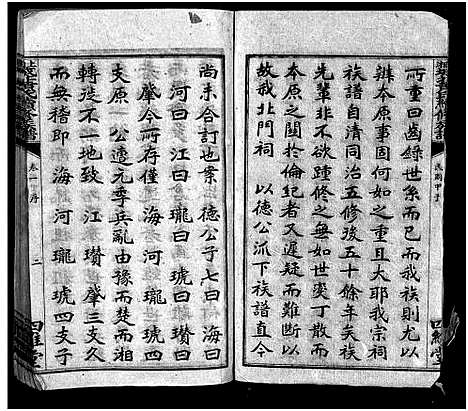 所重曰齒錄世系而已而我族則尤以
辨本原事固何如之重且大耶我宗祠
族譜自清同治五修後五十餘年矣族
先輩非不欲踵修之無如世變丁散而
本原之關於倫紀者又遲疑而難斷以
故我北門祠 以德公派下族譜直今
尚未合訂也案 德公子七曰 海曰
河曰 江曰 瓏曰 琥曰 瓚曰
肇今所存僅 海 河 瓏 琥四
支原一 公遭元季兵亂由豫而楚而湘
轉徙不一其地 江 瓚 肇三支久
而無稽即 海 河 瓏 琥四支子
民國甲子
卷一 序
二
四維堂